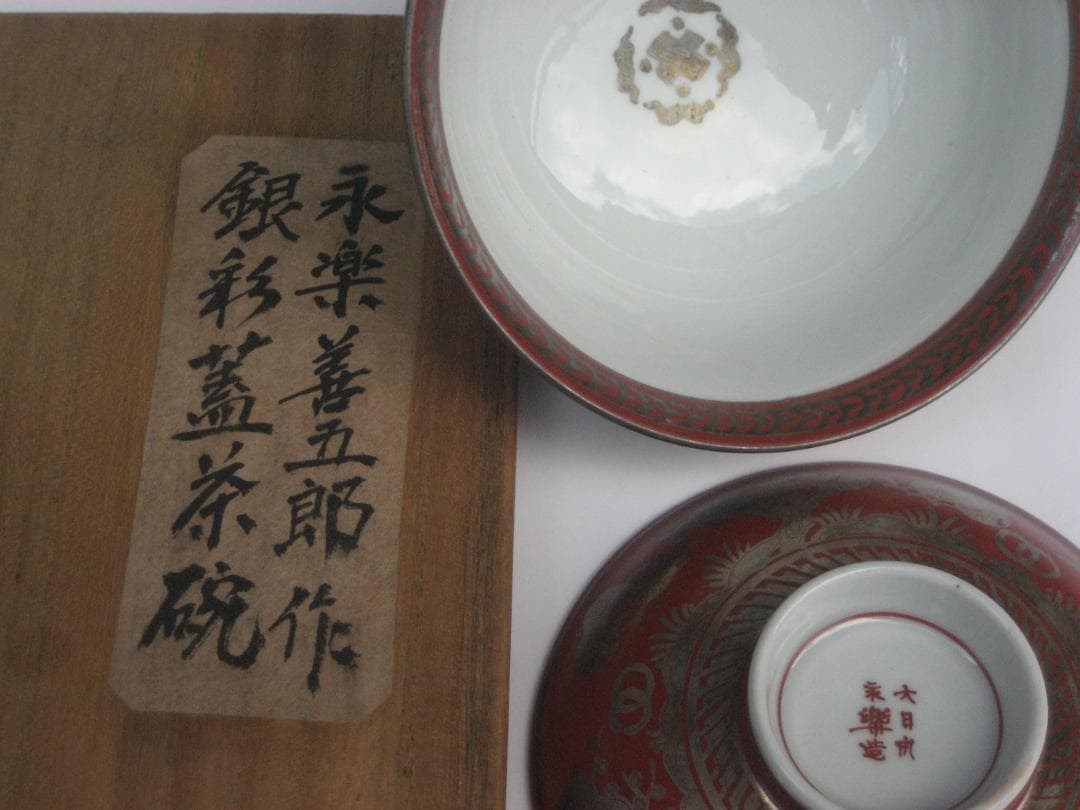 永楽善五郎作
銀彩蓋茶碗
大日本
永樂造